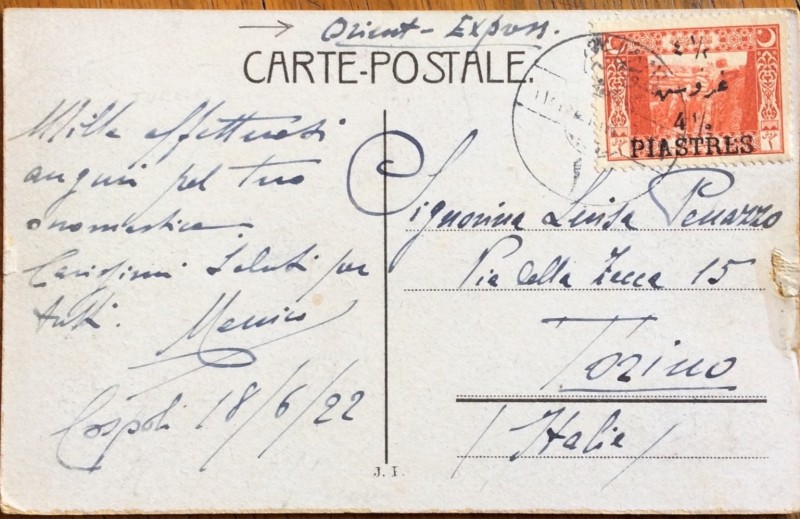 → Orient-Express.
CARTE-POSTALE.
٤ ½
غروش
4 ½
PIASTRES
Mille affettuosi
auguri pel tuo
onomastico.
Carissimi saluti per
tutti.
Cospoli 18/6/22
Signorina Luisa Penazzo
Via della Zecca 15
Torino
(Italie)
J. P.